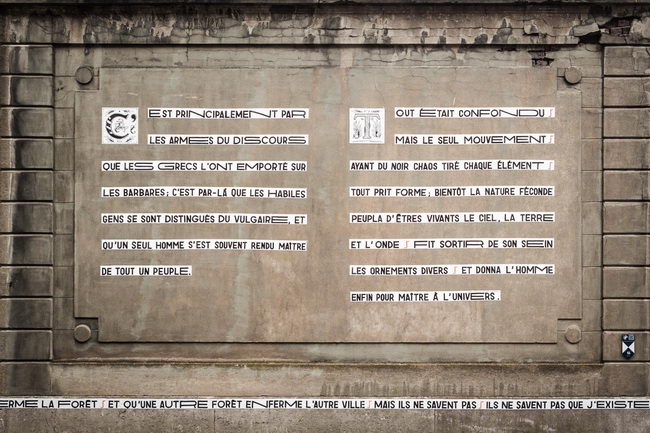 C'EST PRINCIPALEMENT PAR
LES ARMES DU DISCOURS
QUE LES GRECS L'ONT EMPORTÉ SUR
LES BARBARES; C'EST PAR-LÁ QUE LES HABILES
GENS SE SONT DISTINGUÉS DU VULGAIRE, ET
QU'UN SEUL HOMME S'EST SOUVENT RENDU MAÎTRE
DE TOUT UN PEUPLE.
TOUT ÉTAIT CONFONDU ſ
MAIS LE SEUL MOUVEMENT ſ
AYANT DU NOIR CHAOS TIRÉ CHAQUE ÉLÉMENT ſ
TOUT PRIT FORME; BIENTÔT LA NATURE FÉCONDE
PEUPLA D'ÊTRES VIVANTS LE CIEL, LA TERRE
ET L'ONDE ſ FIT SORTIR DE SON SEIN
LES ORNEMENTS DIVERS ſ ET DONNA L'HOMME
ENFIN POUR MAÎTRE À L'UNIVERS.
ERME LA FORÊT ſ ET QU'UNE AUTRE FORÊT ENFERME L'AUTRE VILLE ſ MAIS ILS NE SAVENT PAS ſ ILS NE SAVENT PAS QUE J'EXISTE